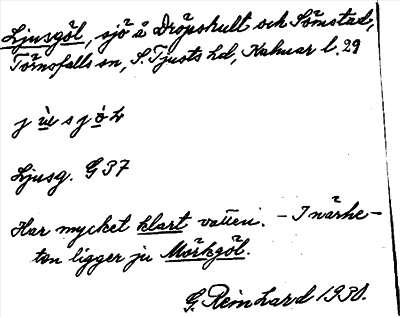 Ljusgöl, sjö å Dröpshult och Sömstad,
Törnsfalls sn, S. Tjusts hd, Kalmar l. 29
Ljusg. G 37
Har mycket klart vatten. – I närhe-
ten ligger ju Mörkgöl.
G. Reinhard 1930.